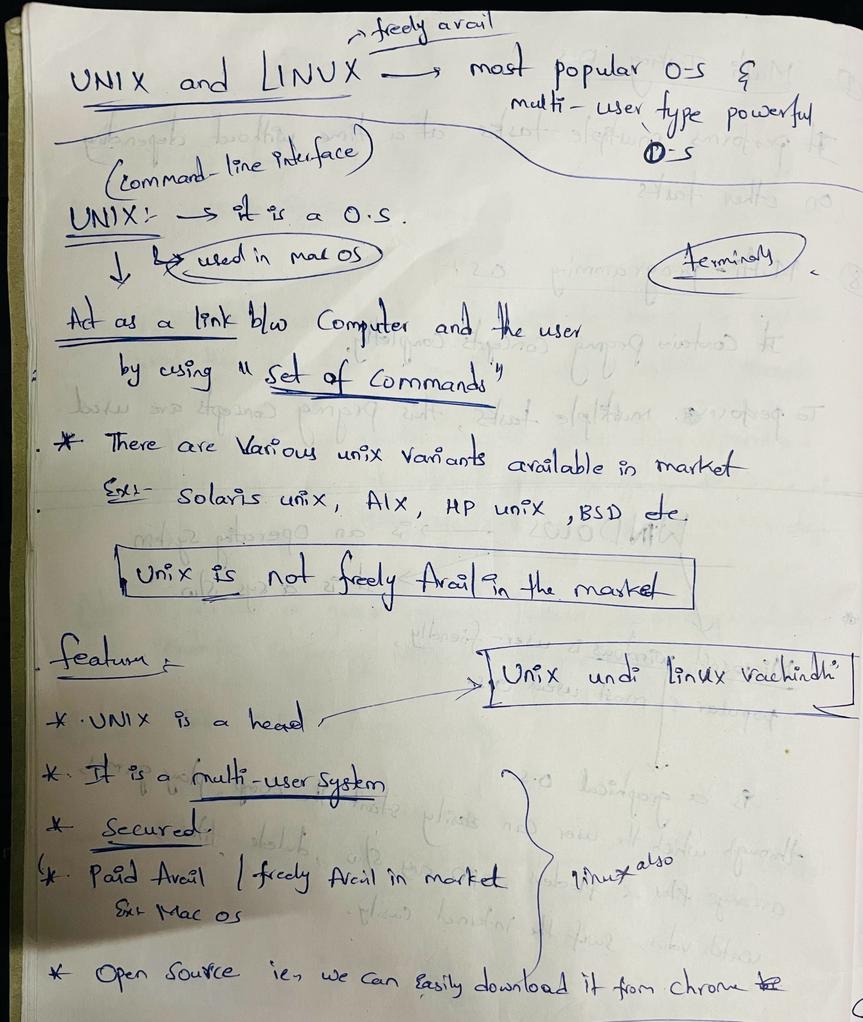 freely avail
UNIX and LINUX → most popular O-S &
multi-user type powerful
O-S
(Command-line interface)
UNIX:- → it is a O.S.
↳ used in mac OS
terminals
Act as a link b/w Computer and the user
by using "Set of Commands"
* There are Various unix variants available in market
Ex:- Solaris unix, AIX, HP unix, BSD etc.
Unix is not freely Avail in the market
feature :-
Unix undi linux vachindhi
* UNIX is a head
* It is a multi-user system
* Secured.
* Paid Avail / freely Avail in market
linux also
Ex:- Mac os
* Open Source ie, we can Easily download it from chrome